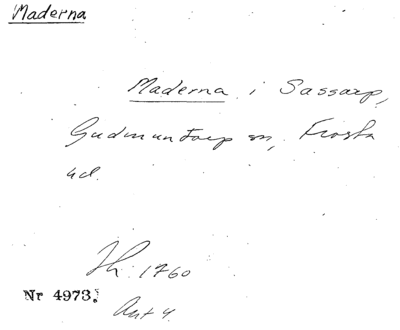 Maderna
Maderna i Sassarp,
Gudmuntorp sn, Frosta
hd.
Jh. 1760
Nr 4973.
Ant 4.